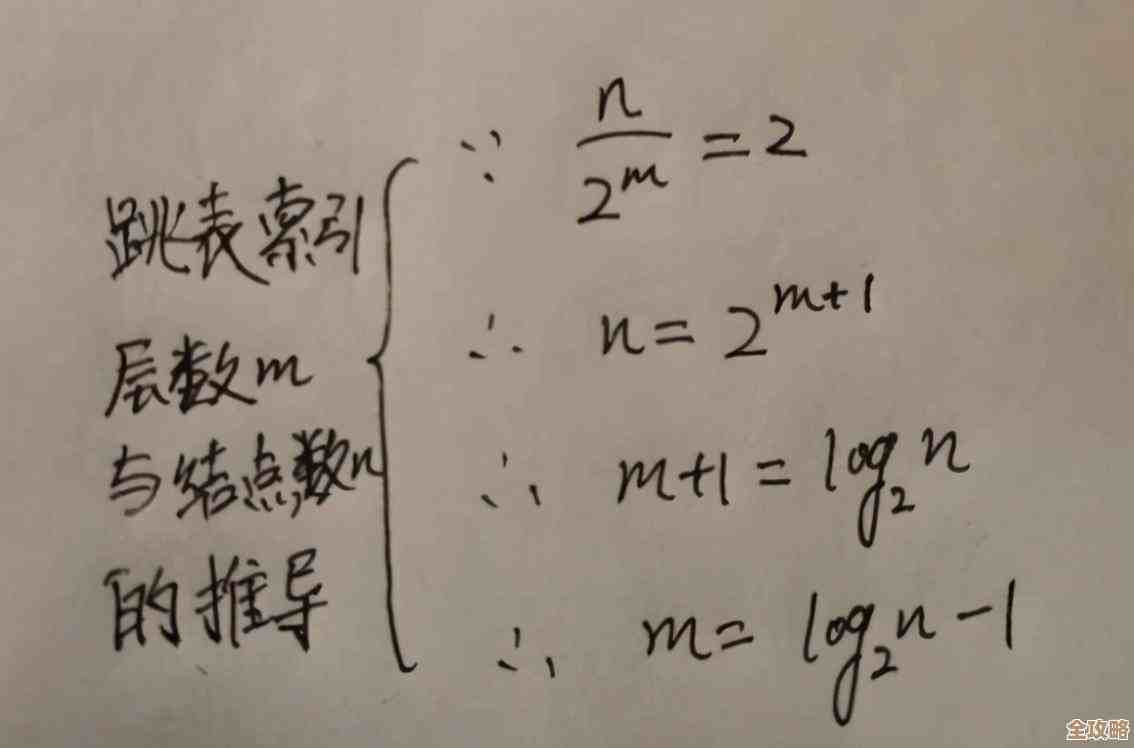 跳表索引
层数m
与结点数n
的推导
∵ n/2^m = 2
∴ n = 2^(m+1)
∴ m+1 = log₂n
∴ m = log₂n - 1
全攻略